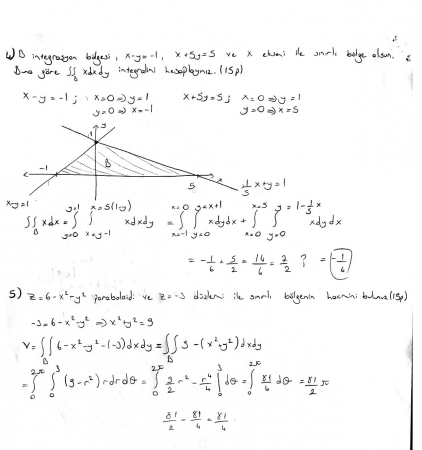 4) B integrasyon bölgesi, x-y=-1, x+5y=5 ve x ekseni ile sınırlı bölge olsun.
Buna göre ∬_B xdxdy integralini hesaplayınız. (15p)
x-y=-1 ; x=0 ⇒ y=1 x+5y=5 ; x=0 ⇒ y=1
y=0 ⇒ x=-1 y=0 ⇒ x=5
y
1
-1 B 5 x
x-y=1 1/5 x+y=1
∬_B xdx = ∫_{y=0}^{y=1} ∫_{x=y-1}^{x=5(1-y)} xdxdy = ∫_{x=-1}^{x=0} ∫_{y=0}^{y=x+1} xdydx + ∫_{x=0}^{x=5} ∫_{y=0}^{y=1-1/5 x} xdydx
= -1/6 + 5/2 = 14/6 = 2/2 ? = -1/6
5) z=6-x²-y² paraboloidi ve z=-3 düzlemi ile sınırlı bölgenin hacmini bulunuz (15p)
-3=6-x²-y² ⇒ x²+y²=9
V=∬_B 6-x²-y²-(-3)dxdy = ∬_B 9-(x²+y²)dxdy
= ∫_0^{2π} ∫_0^3 (9-r²)rdrdθ = ∫_0^{2π} 9/2 r² - r⁴/4 |_0^3 dθ = ∫_0^{2π} 81/4 dθ = 81/2 π
81/2 - 81/4 = 81/4